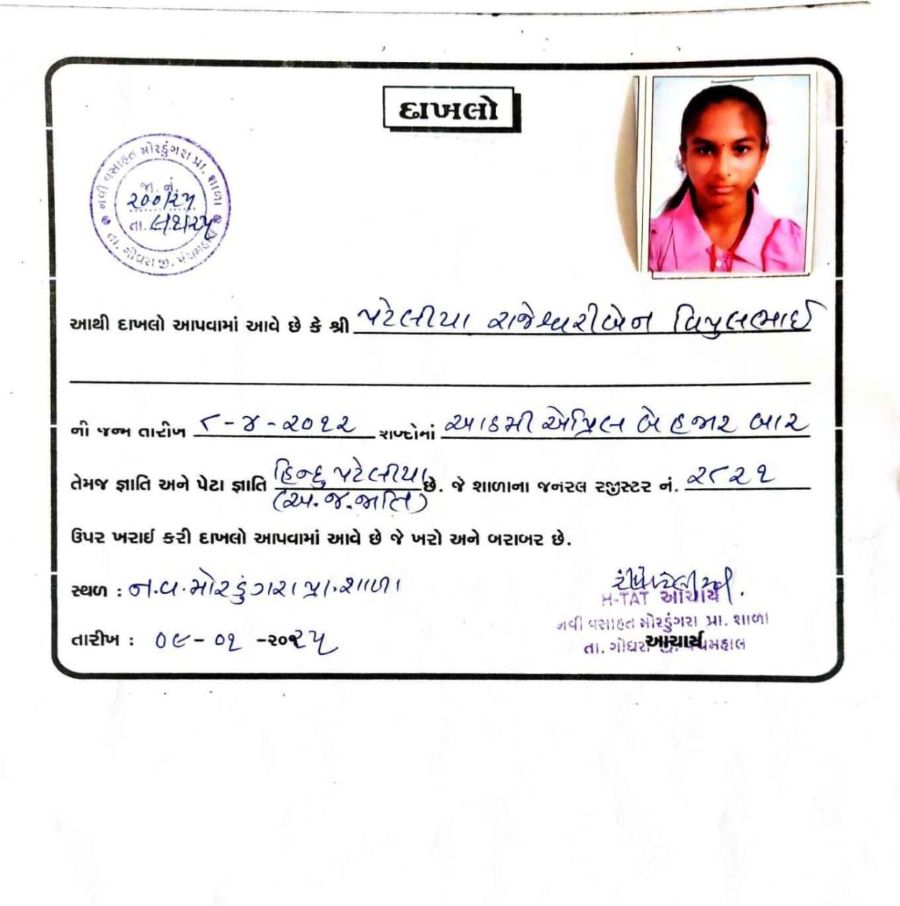 દાખલો
નવી વસાહત મોરડુંગરા પ્રા. શાળા
જા. નં.
૨૦૦/૨૫
તા. ૯/૧/૨૫
તા. ગોધરા જી. પંચમહાલ
આથી દાખલો આપવામાં આવે છે કે શ્રી પટેલીયા રાજેશ્વરીબેન વિપુલભાઈ
ની જન્મ તારીખ ૮-૪-૨૦૧૨ શબ્દોમાં આઠમી એપ્રિલ બે હજાર બાર
તેમજ જ્ઞાતિ અને પેટા જ્ઞાતિ હિન્દુ પટેલીયા છે. જે શાળાના જનરલ રજીસ્ટર નં. ૨૮૨૧
(અ.જ.જાતિ)
ઉપર ખરાઈ કરી દાખલો આપવામાં આવે છે જે ખરો અને બરાબર છે.
સ્થળ : ન.વ.મોરડુંગરા પ્રા.શાળા
H-TAT આચાર્ય
નવી વસાહત મોરડુંગરા પ્રા. શાળા
તારીખ : ૦૯-૦૧ -૨૦૨૫
આચાર્ય
તા. ગોધરા જી. પંચમહાલ